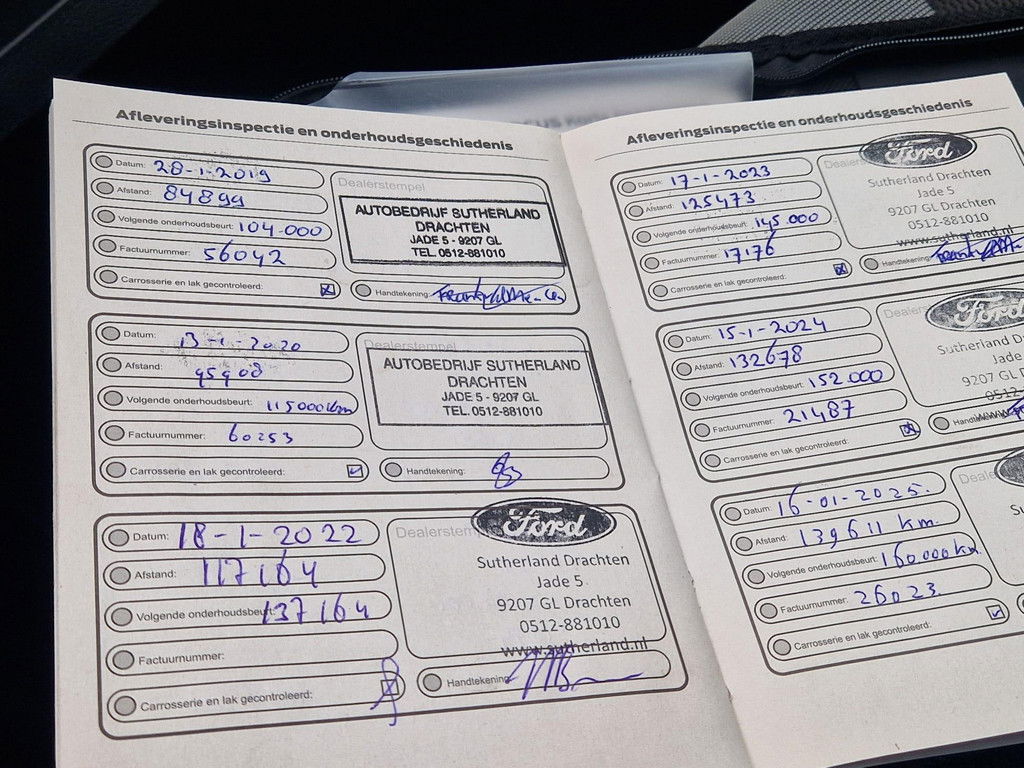 Afleveringsinspectie en onderhoudsgeschiedenis
Datum: 28-1-2019
Afstand: 84899
Volgende onderhoudsbeurt: 104.000
Factuurnummer: 56042
Carrosserie en lak gecontroleerd:
Dealerstempel
AUTOBEDRIJF SUTHERLAND
DRACHTEN
JADE 5 - 9207 GL
TEL. 0512-881010
Handtekening:
Datum: 13-1-2020
Afstand: 95908
Volgende onderhoudsbeurt: 115000km
Factuurnummer: 60253
Carrosserie en lak gecontroleerd:
Dealerstempel
AUTOBEDRIJF SUTHERLAND
DRACHTEN
JADE 5 - 9207 GL
TEL. 0512-881010
Handtekening:
Datum: 18-1-2022
Afstand: 117164
Volgende onderhoudsbeurt: 137164
Factuurnummer:
Carrosserie en lak gecontroleerd:
Dealerstem
Ford
Sutherland Drachten
Jade 5
9207 GL Drachten
0512-881010
www.sutherland.nl
Handtekening
Afleveringsinspectie en onderhoudsgeschiedenis
Datum: 17-1-2023
Afstand: 125473
Volgende onderhoudsbeurt: 145.000
Factuurnummer: 17176
Carrosserie en lak gecontroleerd:
Dealer
Ford
Sutherland Drachten
Jade 5
9207 GL Drachten
0512-881010
www.sutherland.nl
Handtekening:
Datum: 15-1-2024
Afstand: 132678
Volgende onderhoudsbeurt: 152.000
Factuurnummer: 21487
Carrosserie en lak gecontroleerd:
Dealer
Ford
Sutherland D
Jade
9207 GL
0512-
www.
Handteke
Datum: 16-01-2025.
Afstand: 139611 km.
Volgende onderhoudsbeurt: 160.000 km.
Factuurnummer: 26023.
Carrosserie en lak gecontroleerd:
Dea